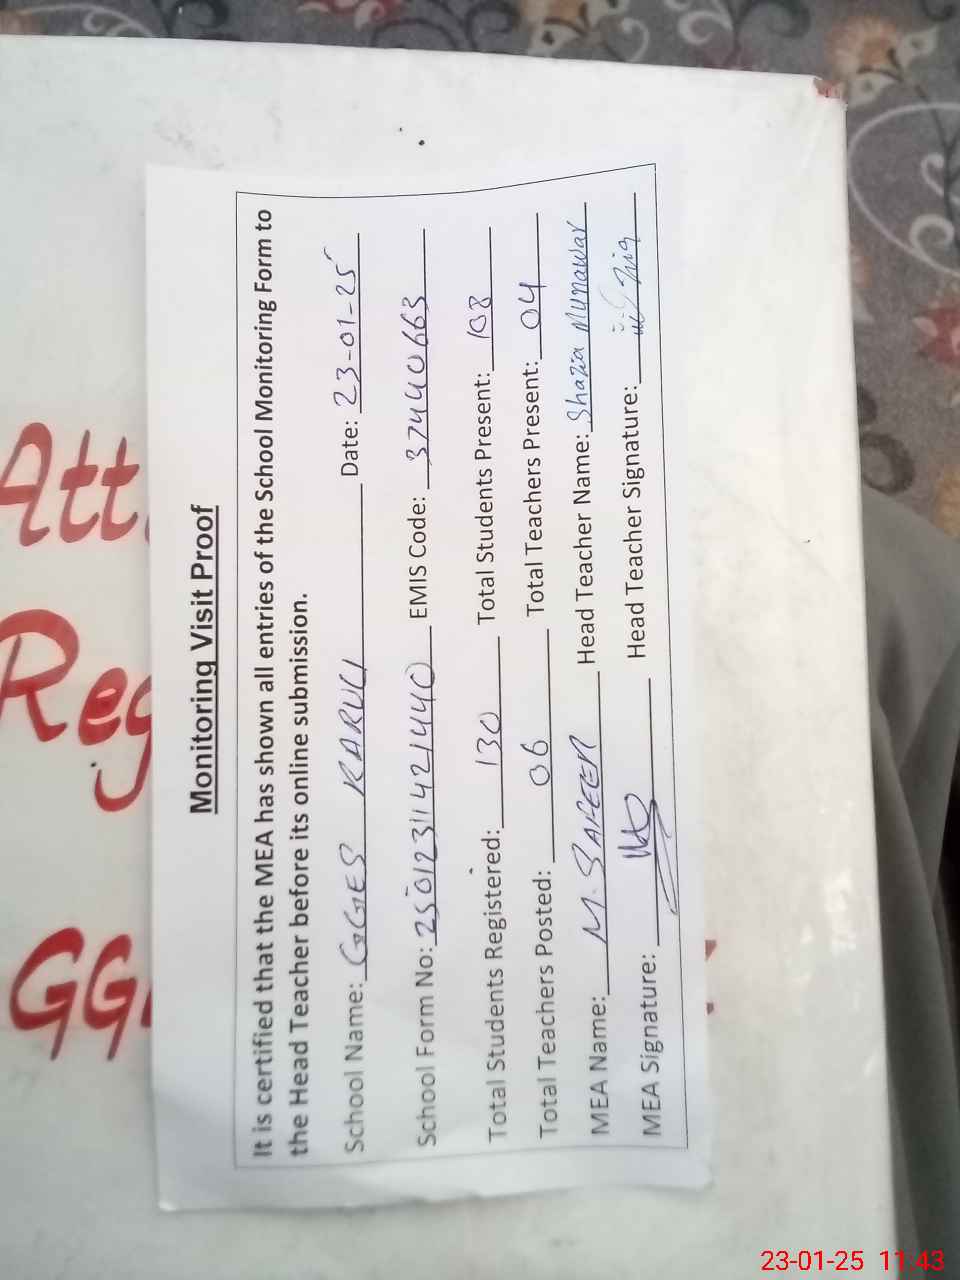 Att
Reg
GG
Monitoring Visit Proof
It is certified that the MEA has shown all entries of the School Monitoring Form to
the Head Teacher before its online submission.
School Name: GGES KARULI Date: 23-01-25
School Form No: 25012311421440 EMIS Code: 37440663
Total Students Registered: 130 Total Students Present: 108
Total Teachers Posted: 06 Total Teachers Present: 04
MEA Name: M. SAFEER Head Teacher Name: Shazia Munawar
MEA Signature: Head Teacher Signature:
23-01-25 11:43